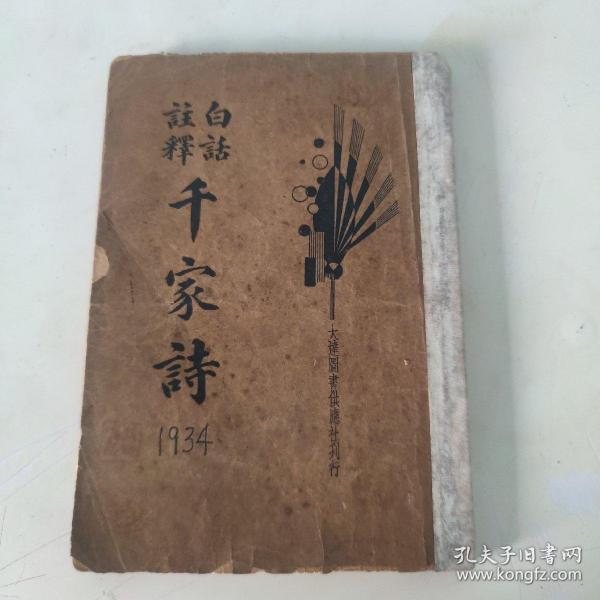 白話
註釋
千家詩
1934
大達圖書供應社刊行
孔夫子旧书网
www.kongfz.com